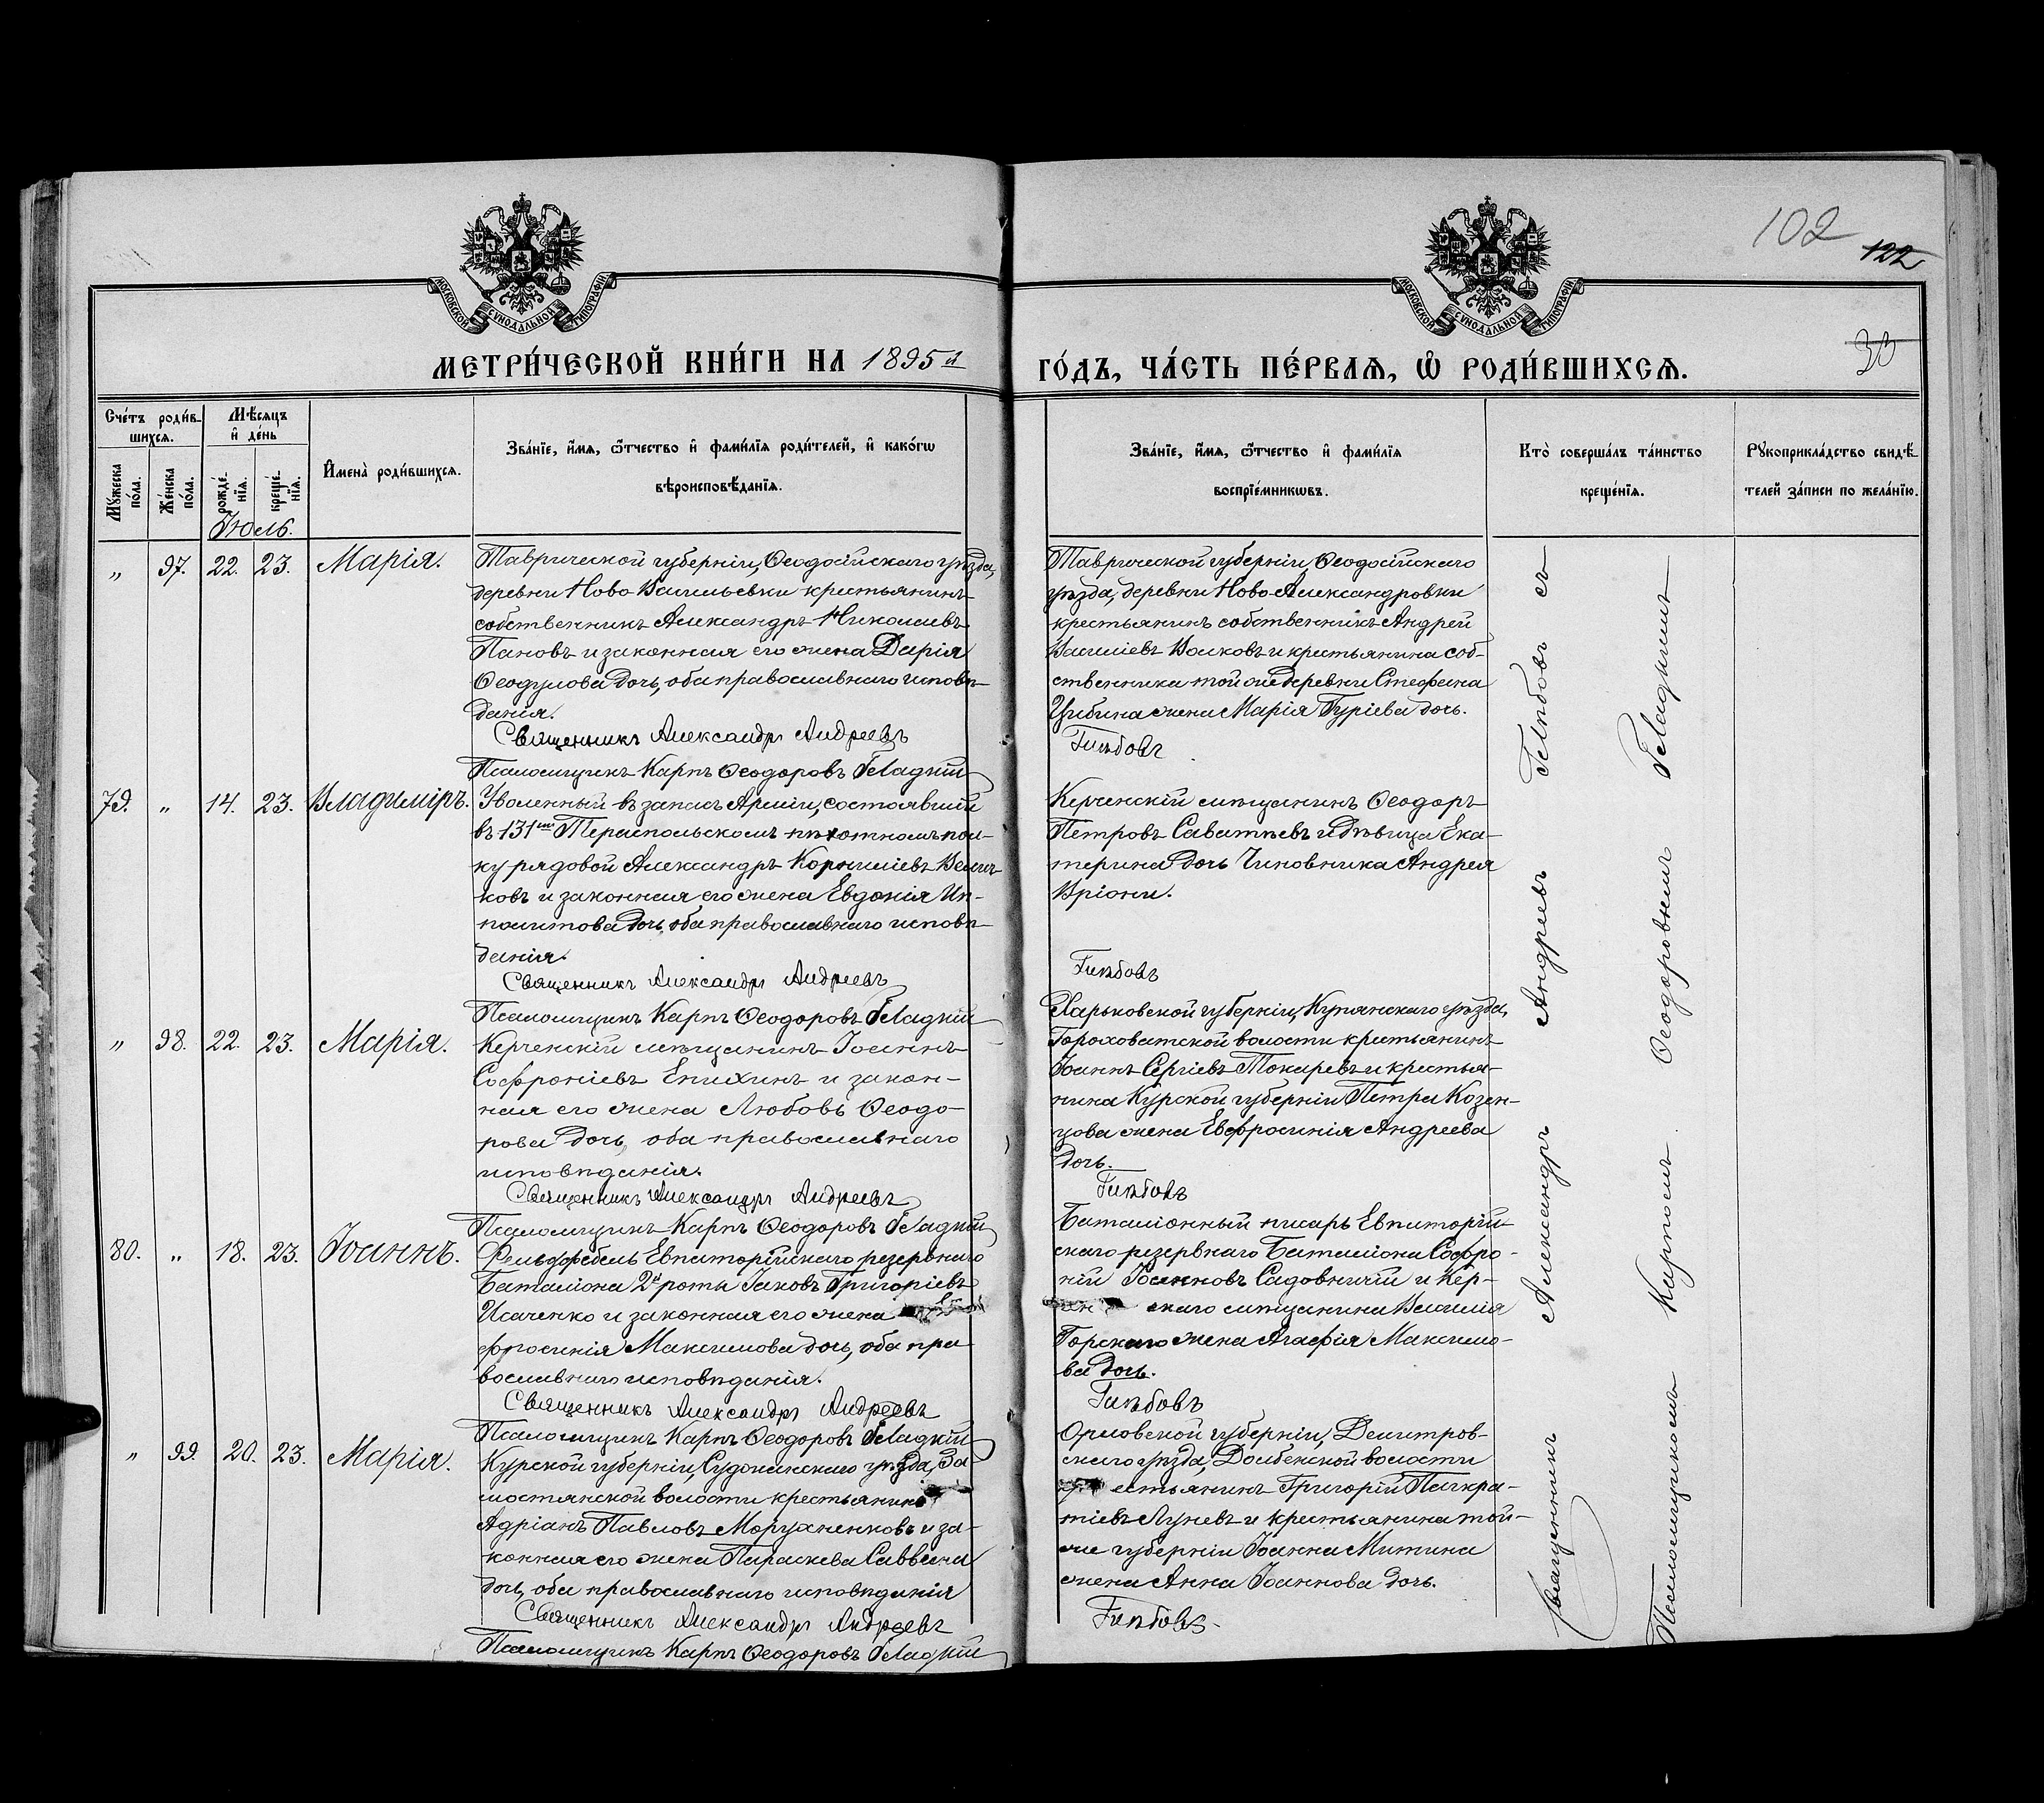 102
122
30
МОСКОВСКОЙ СѴНОДАЛЬНОЙ ТИПОГРАФІИ
МОСКОВСКОЙ СѴНОДАЛЬНОЙ ТИПОГРАФІИ
МЕТРИ́ЧЕСКОЙ КНИ́ГИ НА 1895й
ГО́ДЪ, ЧА́СТЬ ПЕ́РВАѦ, Ѡ҆ РОДИ́ВШИХСѦ.
Сче́тъ роди́в-
шихсѧ.
Мꙋжеска по́ла.
Же́нска по́ла.
Мѣ́сѧцъ
и҆ де́нь
рожде́-
нїѧ.
креще́-
нїѧ.
И҆мена̀ роди́вшихсѧ.
Зва́нїе, и҆́мѧ, ѻ҆́тчество и҆ фами́лїѧ роди́телей, и҆ како́гѡ
вѣроисповѣ́данїѧ.
Зва́нїе, и҆́мѧ, ѻ҆́тчество и҆ фами́лїѧ
воспрїе́мникѡвъ.
Кто̀ соверша́лъ та́инство
креще́нїѧ.
Рꙋкоприкла́дство свидѣ́-
телей за́писи по жела́нїю.
Іюль.
„ 97. 22. 23. Марія.
Таврической губерніи, Ѳеодосійскаго уѣзда,
деревни Ново Васильевки крестьянинъ
собственникъ Александръ Николаевъ
Пановъ и законная его жена Дарія
Ѳеодулова дочь, оба православнаго исповѣ-
данія.
Священникъ Александръ Андреевъ
Псаломщикъ Карпъ Ѳеодоровъ Гладкій
Таврической губерніи, Ѳеодосійскаго
уѣзда, деревни Ново-Александровки
крестьянинъ собственникъ Андрей
Василіевъ Волковъ и крестьянина соб-
ственника той же деревни Стефана
Цибина жена Марія Гуріева дочь.
Глѣбовъ
79. „ 14. 23. Владиміръ.
Уволенный въ запасъ Арміи, состоявшій
въ 131мъ Тираспольскомъ пѣхотномъ пол-
ку рядовой Александръ Корниліевъ
ковъ и законная его жена Евдокія Ип-
политова дочь, оба православнаго исповѣ-
данія.
Священникъ Александръ Андреевъ
Псаломщикъ Карпъ Ѳеодоровъ Гладкій
Керченскій мѣщанинъ Ѳеодоръ
Петровъ Саватѣевъ и дѣвица Ека-
терина дочь Чиновника Андрея
Вріони.
Глѣбовъ
„ 98. 22. 23. Марія.
Керченскій мѣщанинъ Іоаннъ
Софроніевъ Епихинъ и закон-
ная его жена Любовь Ѳеодо-
рова дочь, оба православнаго
исповѣданія.
Священникъ Александръ Андреевъ
Псаломщикъ Карпъ Ѳеодоровъ Гладкій
Харьковской губерніи, Купянскаго уѣзда,
Гороховатской волости крестьянинъ
Іоаннъ Сергіевъ Токаревъ и крестья-
нина Курской губерніи Петра Козен-
цова жена Евфросинія Андреева
дочь.
Глѣбовъ
80. „ 18. 23. Іоаннъ.
Фельдфебель Евпаторійскаго резервнаго
Баталіона 2й роты Іаковъ Григоріевъ
Исаченко и законная его жена
фросинія Максимова дочь, оба пра-
вославнаго исповѣданія.
Священникъ Александръ Андреевъ
Псаломщикъ Карпъ Ѳеодоровъ Гладкій
Баталіонный писарь Евпаторій-
скаго резервнаго Баталіона Софро-
ній Іоанновъ Садовничій и Кер-
скаго мѣщанина Василія
Горскаго жена Агафія Максимо-
ва дочь.
Глѣбовъ
„ 99. 20. 23. Марія.
Курской губерніи, Суджанскаго уѣзда, За-
мостянской волости крестьянинъ
Адріанъ Павловъ Моруженковъ и за-
конная его жена Параскева Саввина
дочь, оба православнаго исповѣданія
Священникъ Александръ Андреевъ
Псаломщикъ Карпъ Ѳеодоровъ Гладкій
Орловской губерніи, Дмитров-
скаго уѣзда, Долбенской волости
крестьянинъ Григорій Панкра-
тіевъ Луневъ и крестьянина той-
же губерніи Іоанна Митина
жена Анна Іоаннова дочь.
Глѣбовъ
Священникъ Александръ Андреевъ Глѣбовъ съ
Псаломщикомъ Карпомъ Ѳеодоровымъ Гладкимъ